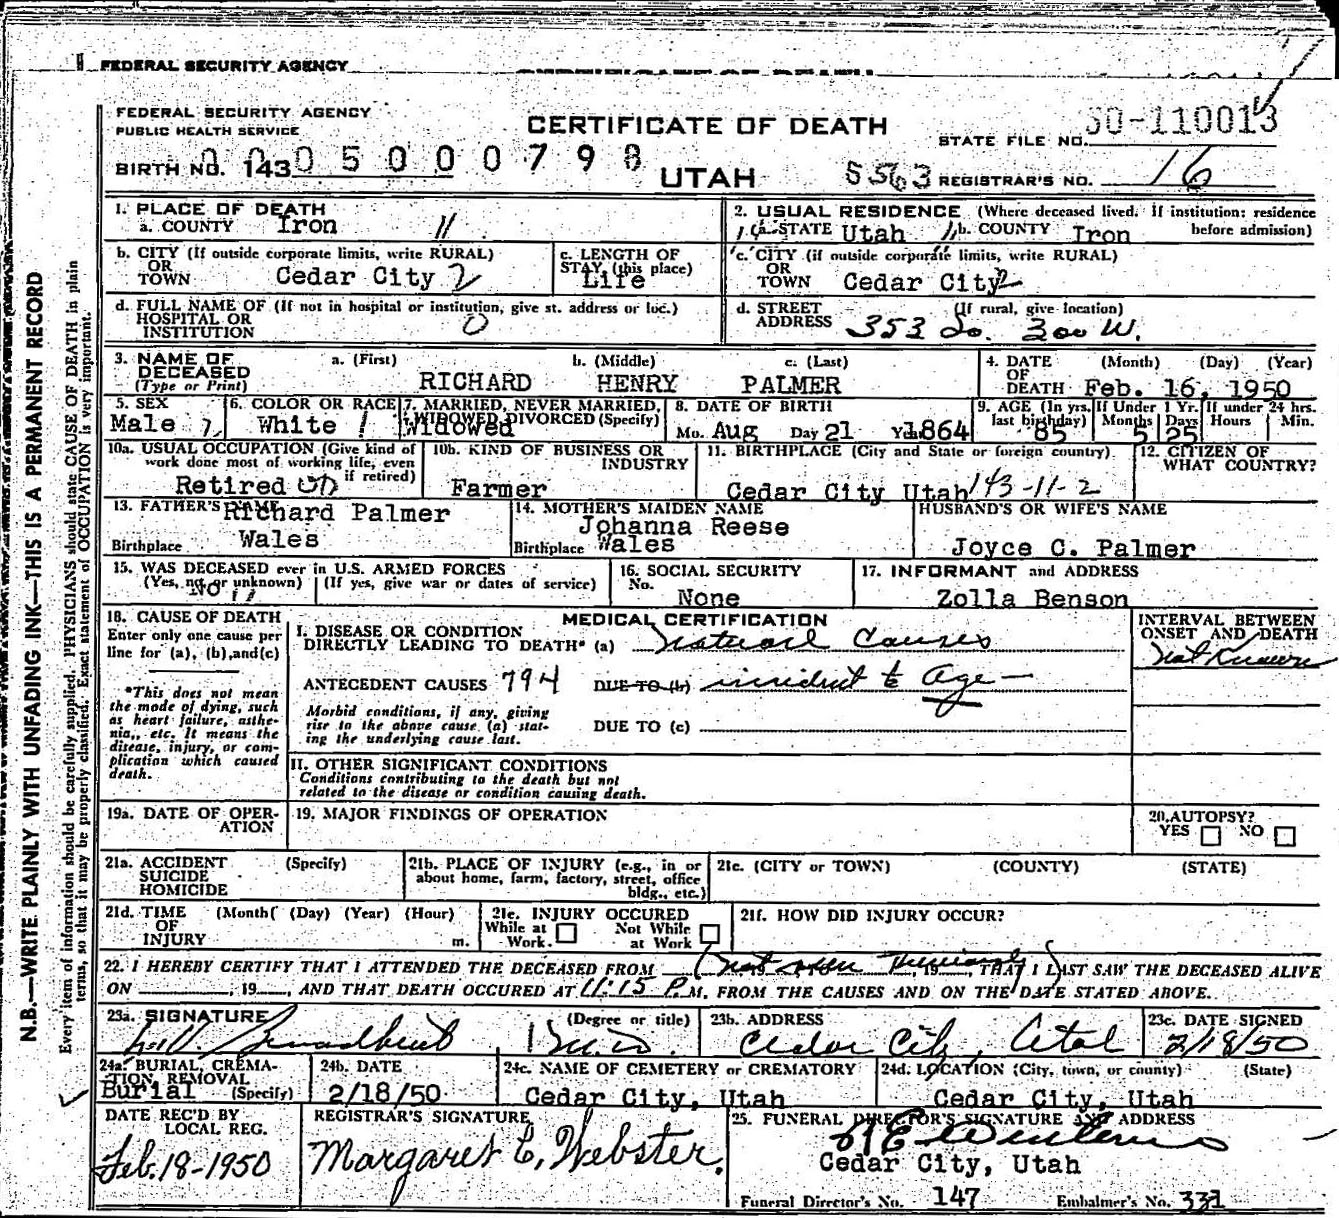 FEDERAL SECURITY AGENCY
FEDERAL SECURITY AGENCY
PUBLIC HEALTH SERVICE
CERTIFICATE OF DEATH
STATE FILE NO. 50-110013
BIRTH NO. 143 0005000798
UTAH
REGISTRAR'S NO. 16
1. PLACE OF DEATH
a. COUNTY Iron 11
2. USUAL RESIDENCE (Where deceased lived. If institution: residence before admission)
a. STATE Utah b. COUNTY Iron
b. CITY (If outside corporate limits, write RURAL) OR TOWN Cedar City 2
c. LENGTH OF STAY (this place) Life
c. CITY (if outside corporate limits, write RURAL) OR TOWN Cedar City 2
d. FULL NAME OF (If not in hospital or institution, give st. address or loc.) HOSPITAL OR INSTITUTION 0
d. STREET ADDRESS (If rural, give location) 353 So. 300 W.
3. NAME OF DECEASED (Type or Print)
a. (First) b. (Middle) c. (Last)
RICHARD HENRY PALMER
4. DATE OF DEATH (Month) (Day) (Year)
Feb. 16, 1950
5. SEX Male
6. COLOR OR RACE White 1
7. MARRIED, NEVER MARRIED, WIDOWED DIVORCED (Specify) Widowed
8. DATE OF BIRTH
Mo. Aug Day 21 Year 1864
9. AGE (In yrs. last birthday) 85
If Under 1 Yr. Months 5 Days 25
If under 24 hrs. Hours Min.
10a. USUAL OCCUPATION (Give kind of work done most of working life, even if retired) Retired
10b. KIND OF BUSINESS OR INDUSTRY
Farmer
11. BIRTHPLACE (City and State or foreign country)
Cedar City Utah 143-11-2
12. CITIZEN OF WHAT COUNTRY?
13. FATHER'S NAME Richard Palmer
Birthplace Wales
14. MOTHER'S MAIDEN NAME
Johanna Reese
Birthplace Wales
HUSBAND'S OR WIFE'S NAME
Joyce C. Palmer
15. WAS DECEASED ever in U.S. ARMED FORCES
(Yes, no, or unknown) (If yes, give war or dates of service)
No
16. SOCIAL SECURITY No.
None
17. INFORMANT and ADDRESS
Zolla Benson
18. CAUSE OF DEATH
Enter only one cause per line for (a), (b), and (c)
*This does not mean the mode of dying, such as heart failure, asthenia, etc. It means the disease, injury, or complication which caused death.
MEDICAL CERTIFICATION
I. DISEASE OR CONDITION DIRECTLY LEADING TO DEATH* (a) Natural Causes
ANTECEDENT CAUSES 794 DUE TO (b) incident to Age
Morbid conditions, if any, giving rise to the above cause (a) stating the underlying cause last.
DUE TO (c)
INTERVAL BETWEEN ONSET AND DEATH
Not Known
II. OTHER SIGNIFICANT CONDITIONS
Conditions contributing to the death but not related to the disease or condition causing death.
19a. DATE OF OPERATION
19. MAJOR FINDINGS OF OPERATION
20. AUTOPSY?
YES NO
21a. ACCIDENT SUICIDE HOMICIDE (Specify)
21b. PLACE OF INJURY (e.g., in or about home, farm, factory, street, office bldg., etc.)
21c. (CITY or TOWN) (COUNTY) (STATE)
21d. TIME OF INJURY (Month) (Day) (Year) (Hour) m.
21e. INJURY OCCURED
While at Work. Not While at Work
21f. HOW DID INJURY OCCUR?
22. I HEREBY CERTIFY THAT I ATTENDED THE DECEASED FROM (Not seen previously), 19, THAT I LAST SAW THE DECEASED ALIVE
ON , 19 , AND THAT DEATH OCCURED AT 11:15 P.M. FROM THE CAUSES AND ON THE DATE STATED ABOVE.
23a. SIGNATURE (Degree or title)
Broadbent M.D.
23b. ADDRESS
Cedar City, Utah
23c. DATE SIGNED
2/18/50
24a. BURIAL, CREMATION, REMOVAL (Specify) Burial
24b. DATE
2/18/50
24c. NAME OF CEMETERY or CREMATORY
Cedar City, Utah
24d. LOCATION (City, town, or county) (State)
Cedar City, Utah
DATE REC'D BY LOCAL REG.
Feb. 18-1950
REGISTRAR'S SIGNATURE
Margaret C. Webster.
25. FUNERAL DIRECTOR'S SIGNATURE AND ADDRESS
Cedar City, Utah
Funeral Director's No. 147 Embalmer's No. 331
N.B.—WRITE PLAINLY WITH UNFADING INK—THIS IS A PERMANENT RECORD
Every item of information should be carefully supplied. PHYSICIANS should state CAUSE OF DEATH in plain
terms, so that it may be properly classified. Exact statement of OCCUPATION is very important.